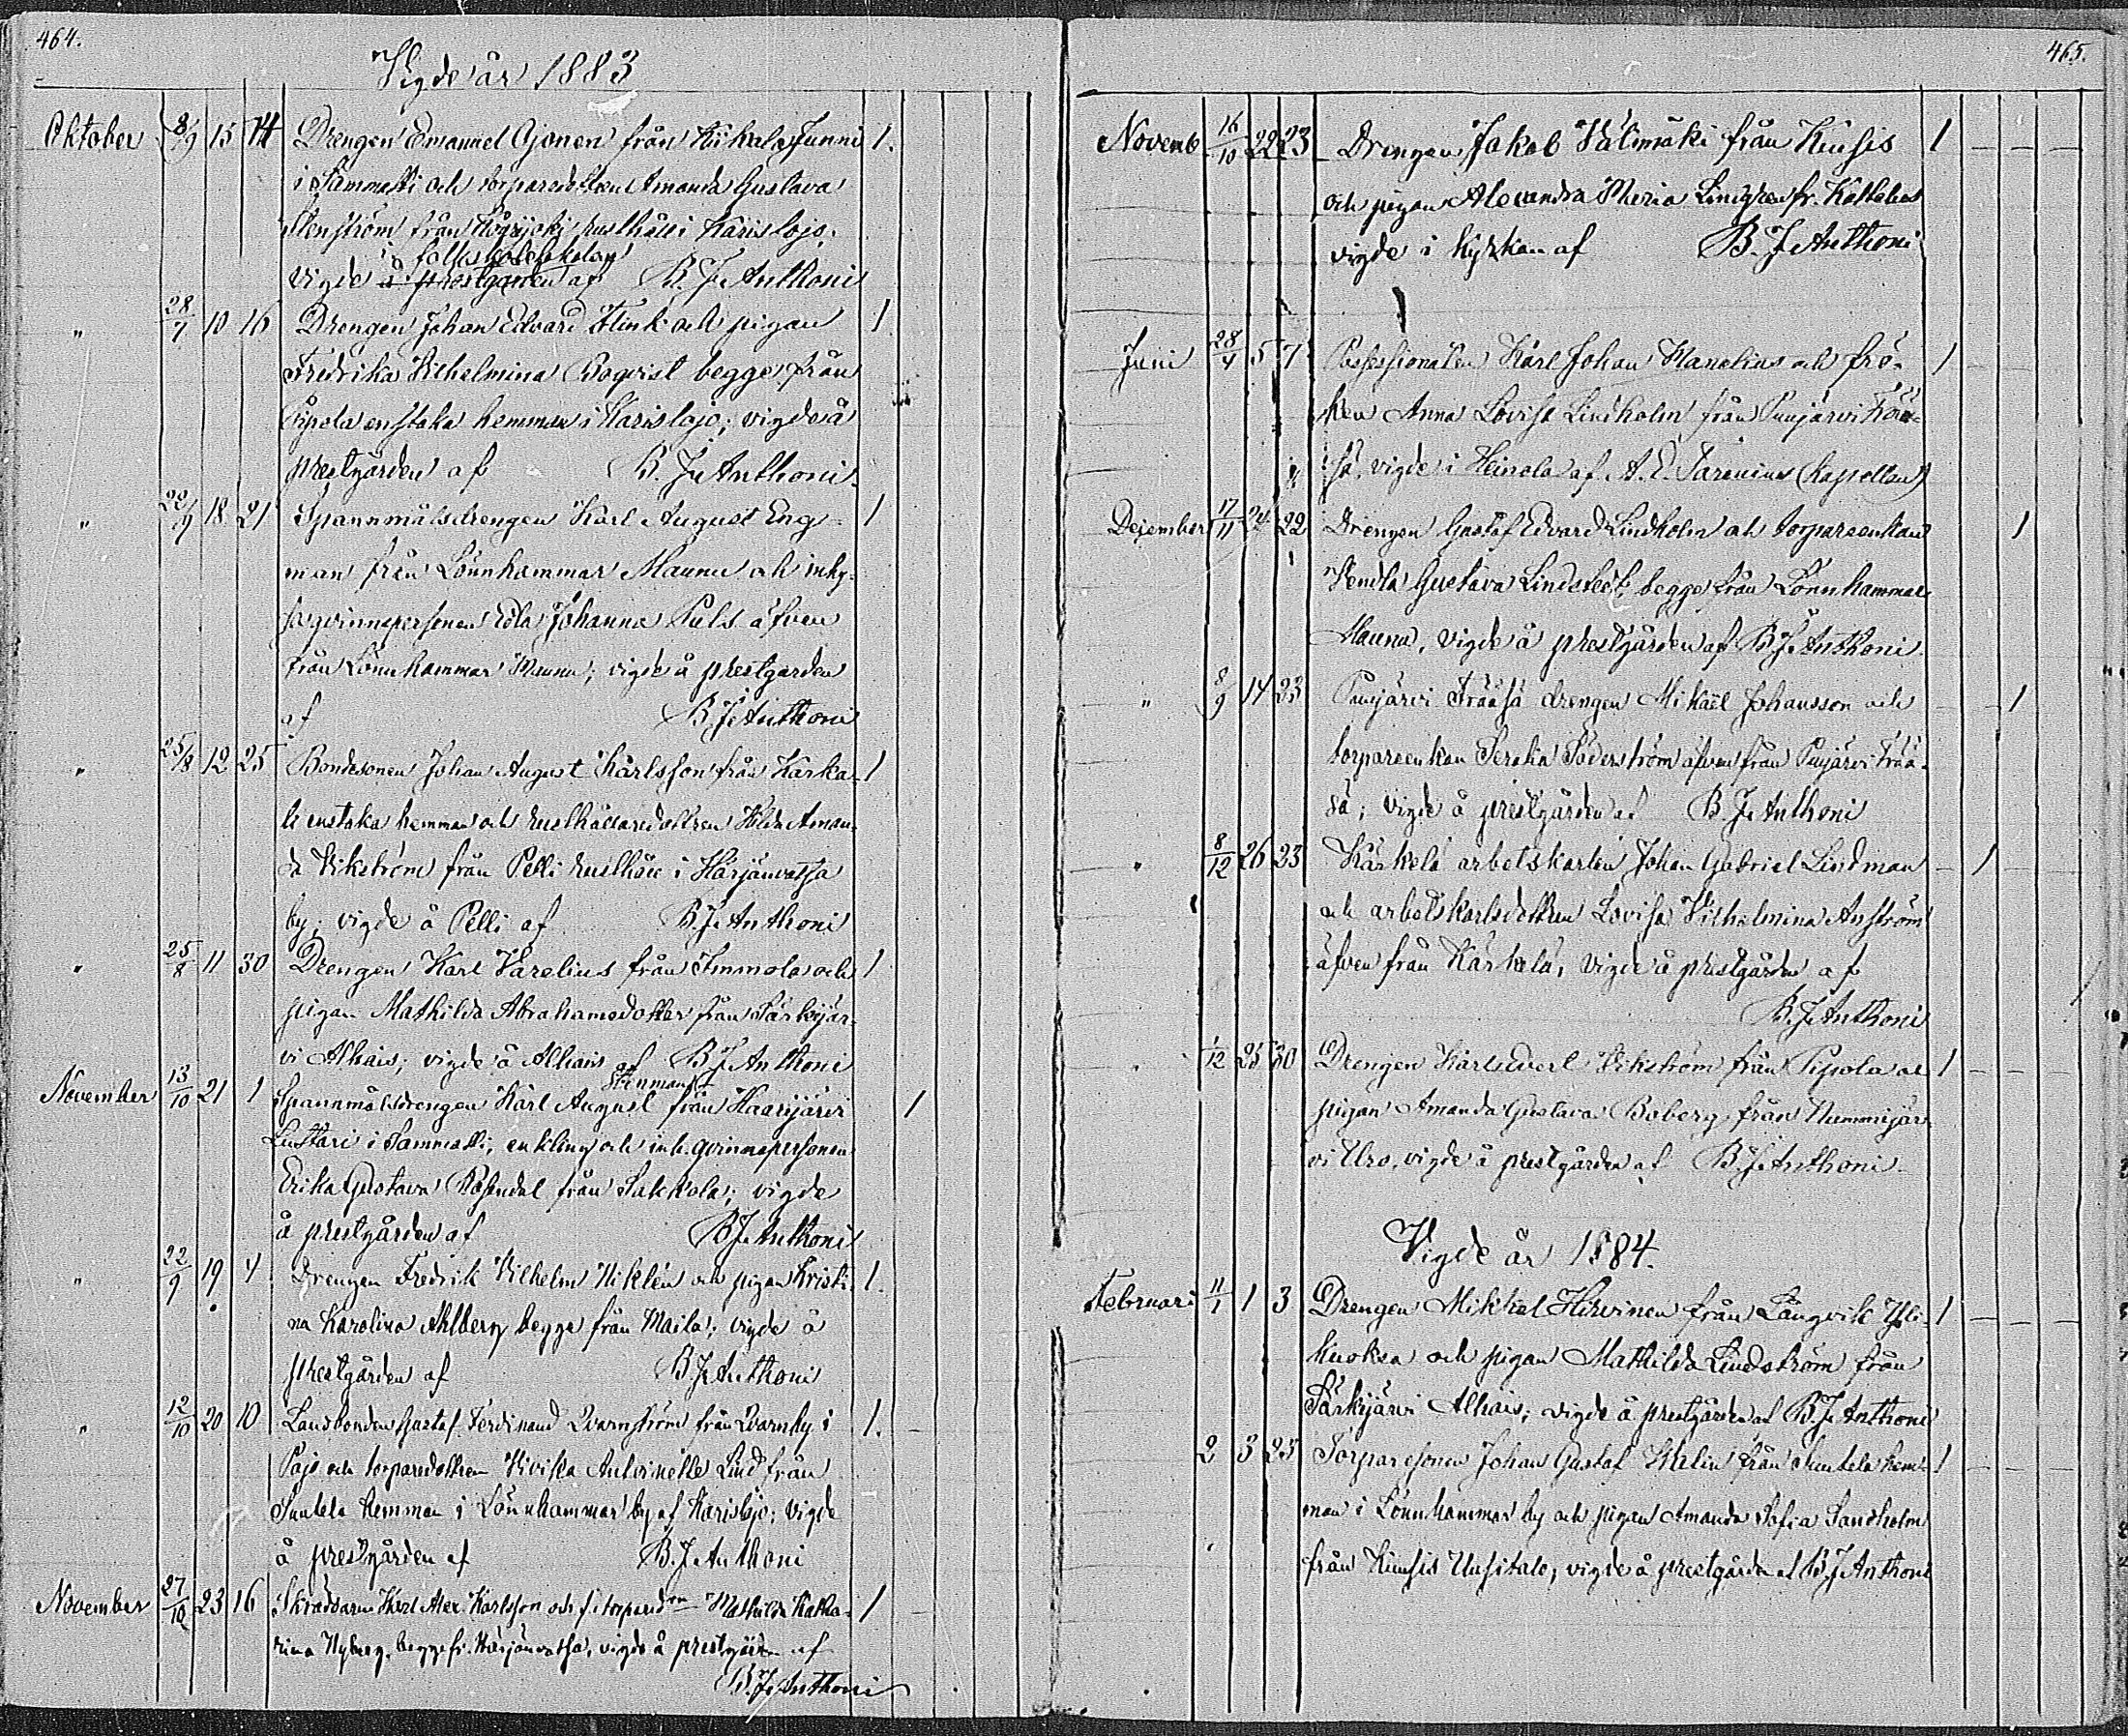 464.
Vigde år 1883
Oktober 8/9 15 14 Drengen Emanuel Ojonen från Kiikala Junni 1.
i Sammatti och torparedottren Amanda Gustava
Stenström från rusthåll i Karislojo;
i folkskolelokalen
vigde å prestgården af B. J. Anthoni
" 28/7 10 16 Drengen Johan Edvard Flink och pigan 1
Fredrika Vilhelmina Boqvist begge från
Pipola enstaka hemman i Karislojo; vigde å
prestgården af B. J. Anthoni
" 20/9 18 21 Spannmålsdrengen Karl August Eng- 1
man från Lönnhammar Maunu och inhy-
sesqvinnspersonen Edla Johanna Puls äfven
från Lönnhammar Maunu; vigde å prestgården
af B. J. Anthoni
" 25/8 12 25 Bondesonen Johan August Karlsson från Karka- 1
li enstaka hemman och rusthållaredottren Hilda Aman-
da Vikström från Pelli rusthåll i Härjänvatsa
by; vigde å Pelli af B. J. Anthoni
" 25/8 11 30 Drengen Karl Varelius från Immola och 1
pigan Mathilda Abrahamsdotter från Särkijär-
vi Alhais; vigde å Alhais af B. J. Anthoni
Stenman
November 13/10 21 1 Spannmålsdrengen Karl August från Haarijärvi 1
Lustari i Sammatti, enkling och inh. qvinnspersonen
Erika Gustava Rosendal från Sakkola; vigde
å prestgården af B. J. Anthoni
" 22/9 19 4 Drengen Fredrik Vilhelm Niklén och pigan Kristi- 1.
na Karolina Ahlberg begge från Maila; vigde å
prestgården af B. J. Anthoni
" 12/10 20 10 Landbonden Gustaf Ferdinand Qvarnström från Qvarnby i 1.
Pojo och torparedottren Vivika Antoinette Lind från
Suutela hemman i Lönnhammar by af Karislojo; vigde
å prestgården af B. J. Anthoni
November 27/10 23 16 Skräddaren Karl Alex Karlsson och f. torpared:en Mathilda Katha- 1
rina Nyberg, begge fr. Härjänvatsa, vigde å prestgården af
B. J. Anthoni
465.
Novemb 16/10 22 23 Drengen Jakob Välimäki från Kiusis 1
och pigan Alexandra Maria Lindgren fr.
vigde i kyrkan af B. J. Anthoni
Juni 28/4 5 7 Possessionaten Karl Johan Wanelius och frö- 1
ken Anna Lovisa Lindholm från Puujärvi
vigde i Heinola af A. E. Tarenius (kapellan)
December 17/11 24 22 Drengen Gustaf Edvard Lindholm och torpareenkan 1
Vendla Gustava Lindstedt, begge från Lönnhammar
Maunu, vigde å prestgården af B. J. Anthoni
" 8/9 14 23 Puujärvi Frääsä drengen Mikaël Johansson och 1
torpareenkan Serafia Söderström äfven från Puujärvi Frää-
sä; vigde å prestgården af B. J. Anthoni
" 8/12 26 23 Kärkelä arbetskarlen Johan Gabriel Lindman 1
och arbetskarlsdottren Lovisa Vilhelmina Anström
äfven från Kärkelä, vigde å prestgården af
B. J. Anthoni
" 1/12 25 30 Drengen Karl Edvard Vikström från Pipola o. 1
pigan Amanda Gustava Boberg från Nummijär-
vi Uro, vigde å prestgården af B. J. Anthoni
Vigde år 1884.
Februari 11/1 1 3 Drengen Mikkel Hirvinen från Långvik Yli- 1
kuoksa och pigan Mathilda Lindström från
Särkijärvi Alhais; vigde å prestgården af B. J. Anthoni
2 3 25 Torparesonen Johan Gustaf Ekelin från Suutela hem- 1
man i Lönnhammar by och pigan Amanda Sofia Sandholm
från Kiusis Uusitalo, vigde å prestgården af B. J. Anthoni